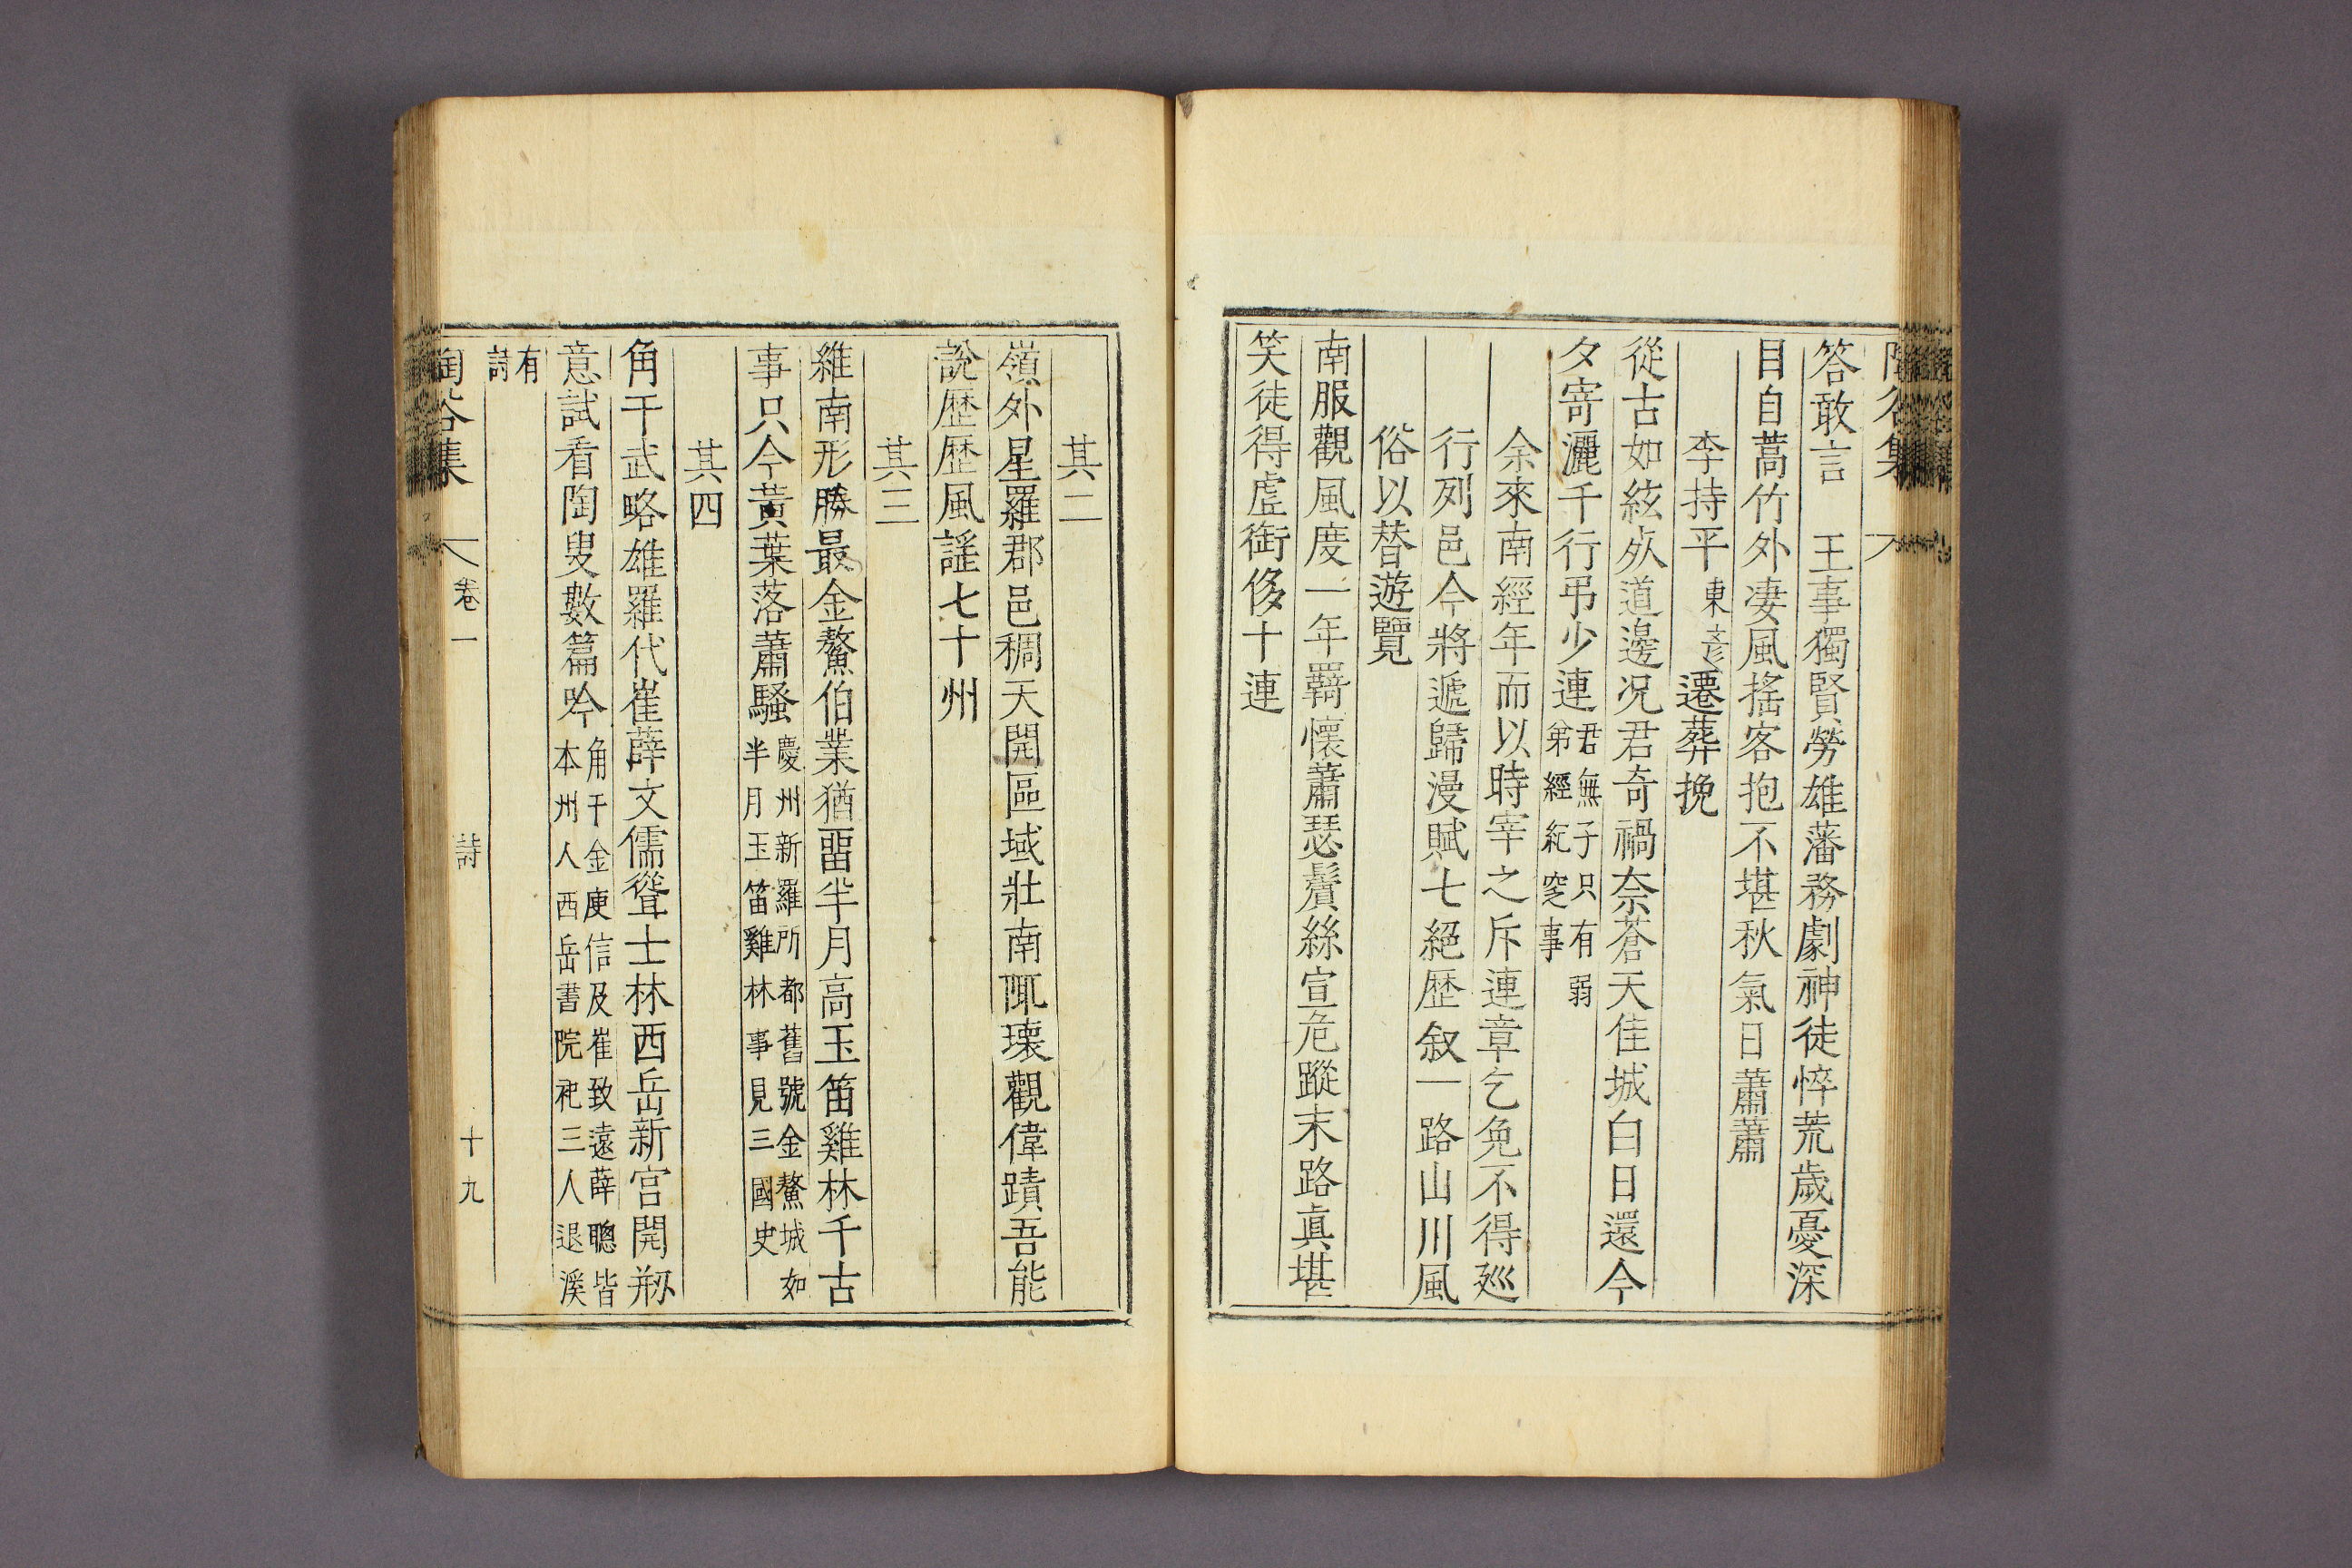 陶谷集
答敢言　王事獨賢勞雄藩務劇神徒悴荒歲憂深
目自蒿竹外凄風搖客抱不堪秋氣日蕭蕭
李持平東彦遷葬挽
從古如絃死道邊况君奇禍奈蒼天佳城白日還今
夕寄灑千行弔少連君無子只有弱
弟經紀窆事
余來南經年而以時宰之斥連章乞免不得廵
行列邑今將遞歸漫賦七絕歷叙一路山川風
俗以替遊覽
南服觀風度一年羇懷蕭瑟鬢絲宣危蹤末路眞堪
笑徒得虛銜侈十連
其二
嶺外星羅郡邑稠天開區域壯南陬瓌觀偉蹟吾能
說歷歷風謠七十州
其三
維南形勝最金鰲伯業猶留半月高玉笛雞林千古
事只今黃葉落蕭騷慶州新羅所都舊號金鰲城如
半月玉笛雞林事見三國史
其四
角干武略雄羅代崔薛文儒聳士林西岳新宮開剏
意試看陶叟數篇吟角干金庾信及崔致遠薛聰皆
本州人西岳書院祀三人退溪
有
詩
陶谷集
卷一
詩
十九